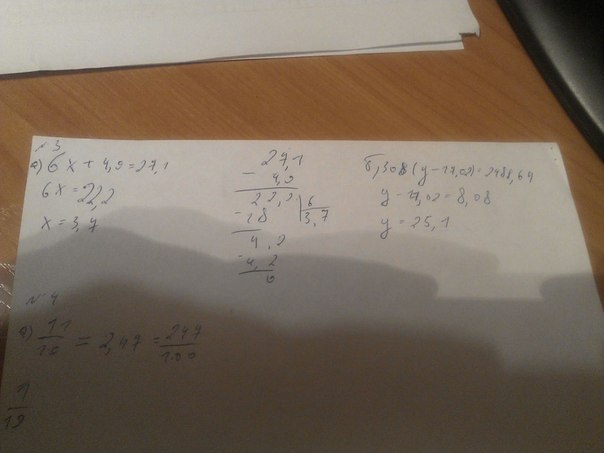 №3
а) 6x + 4,9 = 27,1
6x = 22,2
x = 3,7
27,1
- 4,9
22,2 | 6
- 18 3,7
4,2
- 4,2
0
б) 308(y-17,02) = 2488,64
y - 17,02 = 8,08
y = 25,1
№4
а) 11/10 = 2,47 = 247/100
1/19